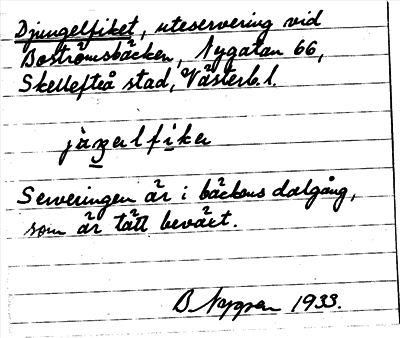 Djungelfiket, uteservering vid
Boströmsbäcken, Nygatan 66,
Skellefteå stad, Västerb. l.
Serveringen är i bäckens dalgång,
som är tätt beväxt.
B Nygren 1933.